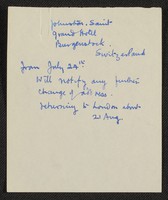 Johnston. Saint
Grand Hotel
Burgenstock.
Switzerland
From July 29th
Will notify any further
change of address.
returning to London about
21 Aug